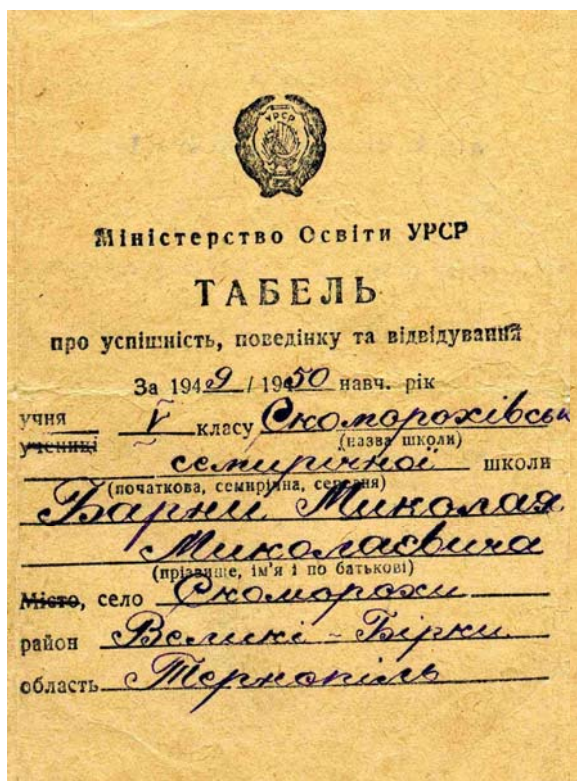 УРСР
Міністерство Освіти УРСР
ТАБЕЛЬ
про успішність, поведінку та відвідування
За 1949 / 1950 навч. рік
учня V класу Скоморохівськ
учениці (назва школи)
семирічної школи
(початкова, семирічна, середня)
Барни Миколая
Миколаєвича
(прізвище, ім'я і по батькові)
Місто, село Скоморохи
район Великі - Бірки
область Тернопіль